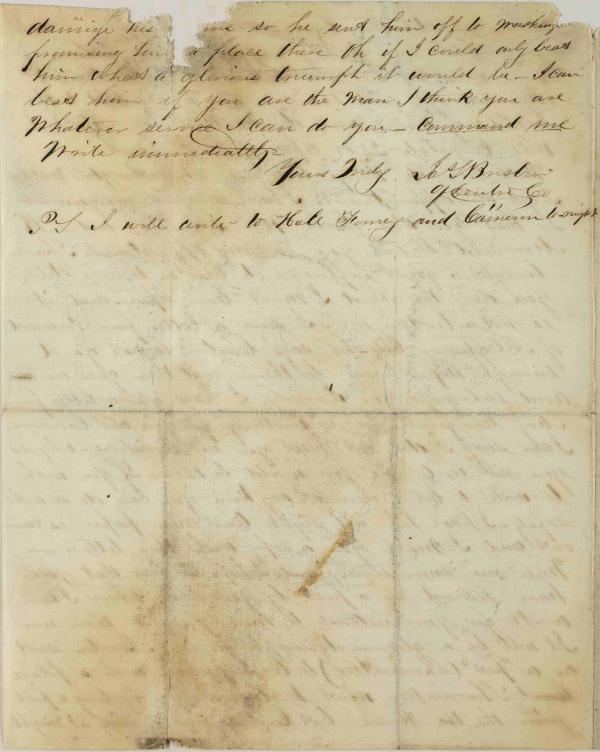 damage his me so he sent him off to Washing
promising him a place there Oh if I could only beat
him what a glorious triumph it would be - I can
beat him if you are the man I think you are
Whatever service I can do you - Command me
Write immediately -
Yours Truly
Centre Co
P S I will write to Hall Forney and Cameron to night